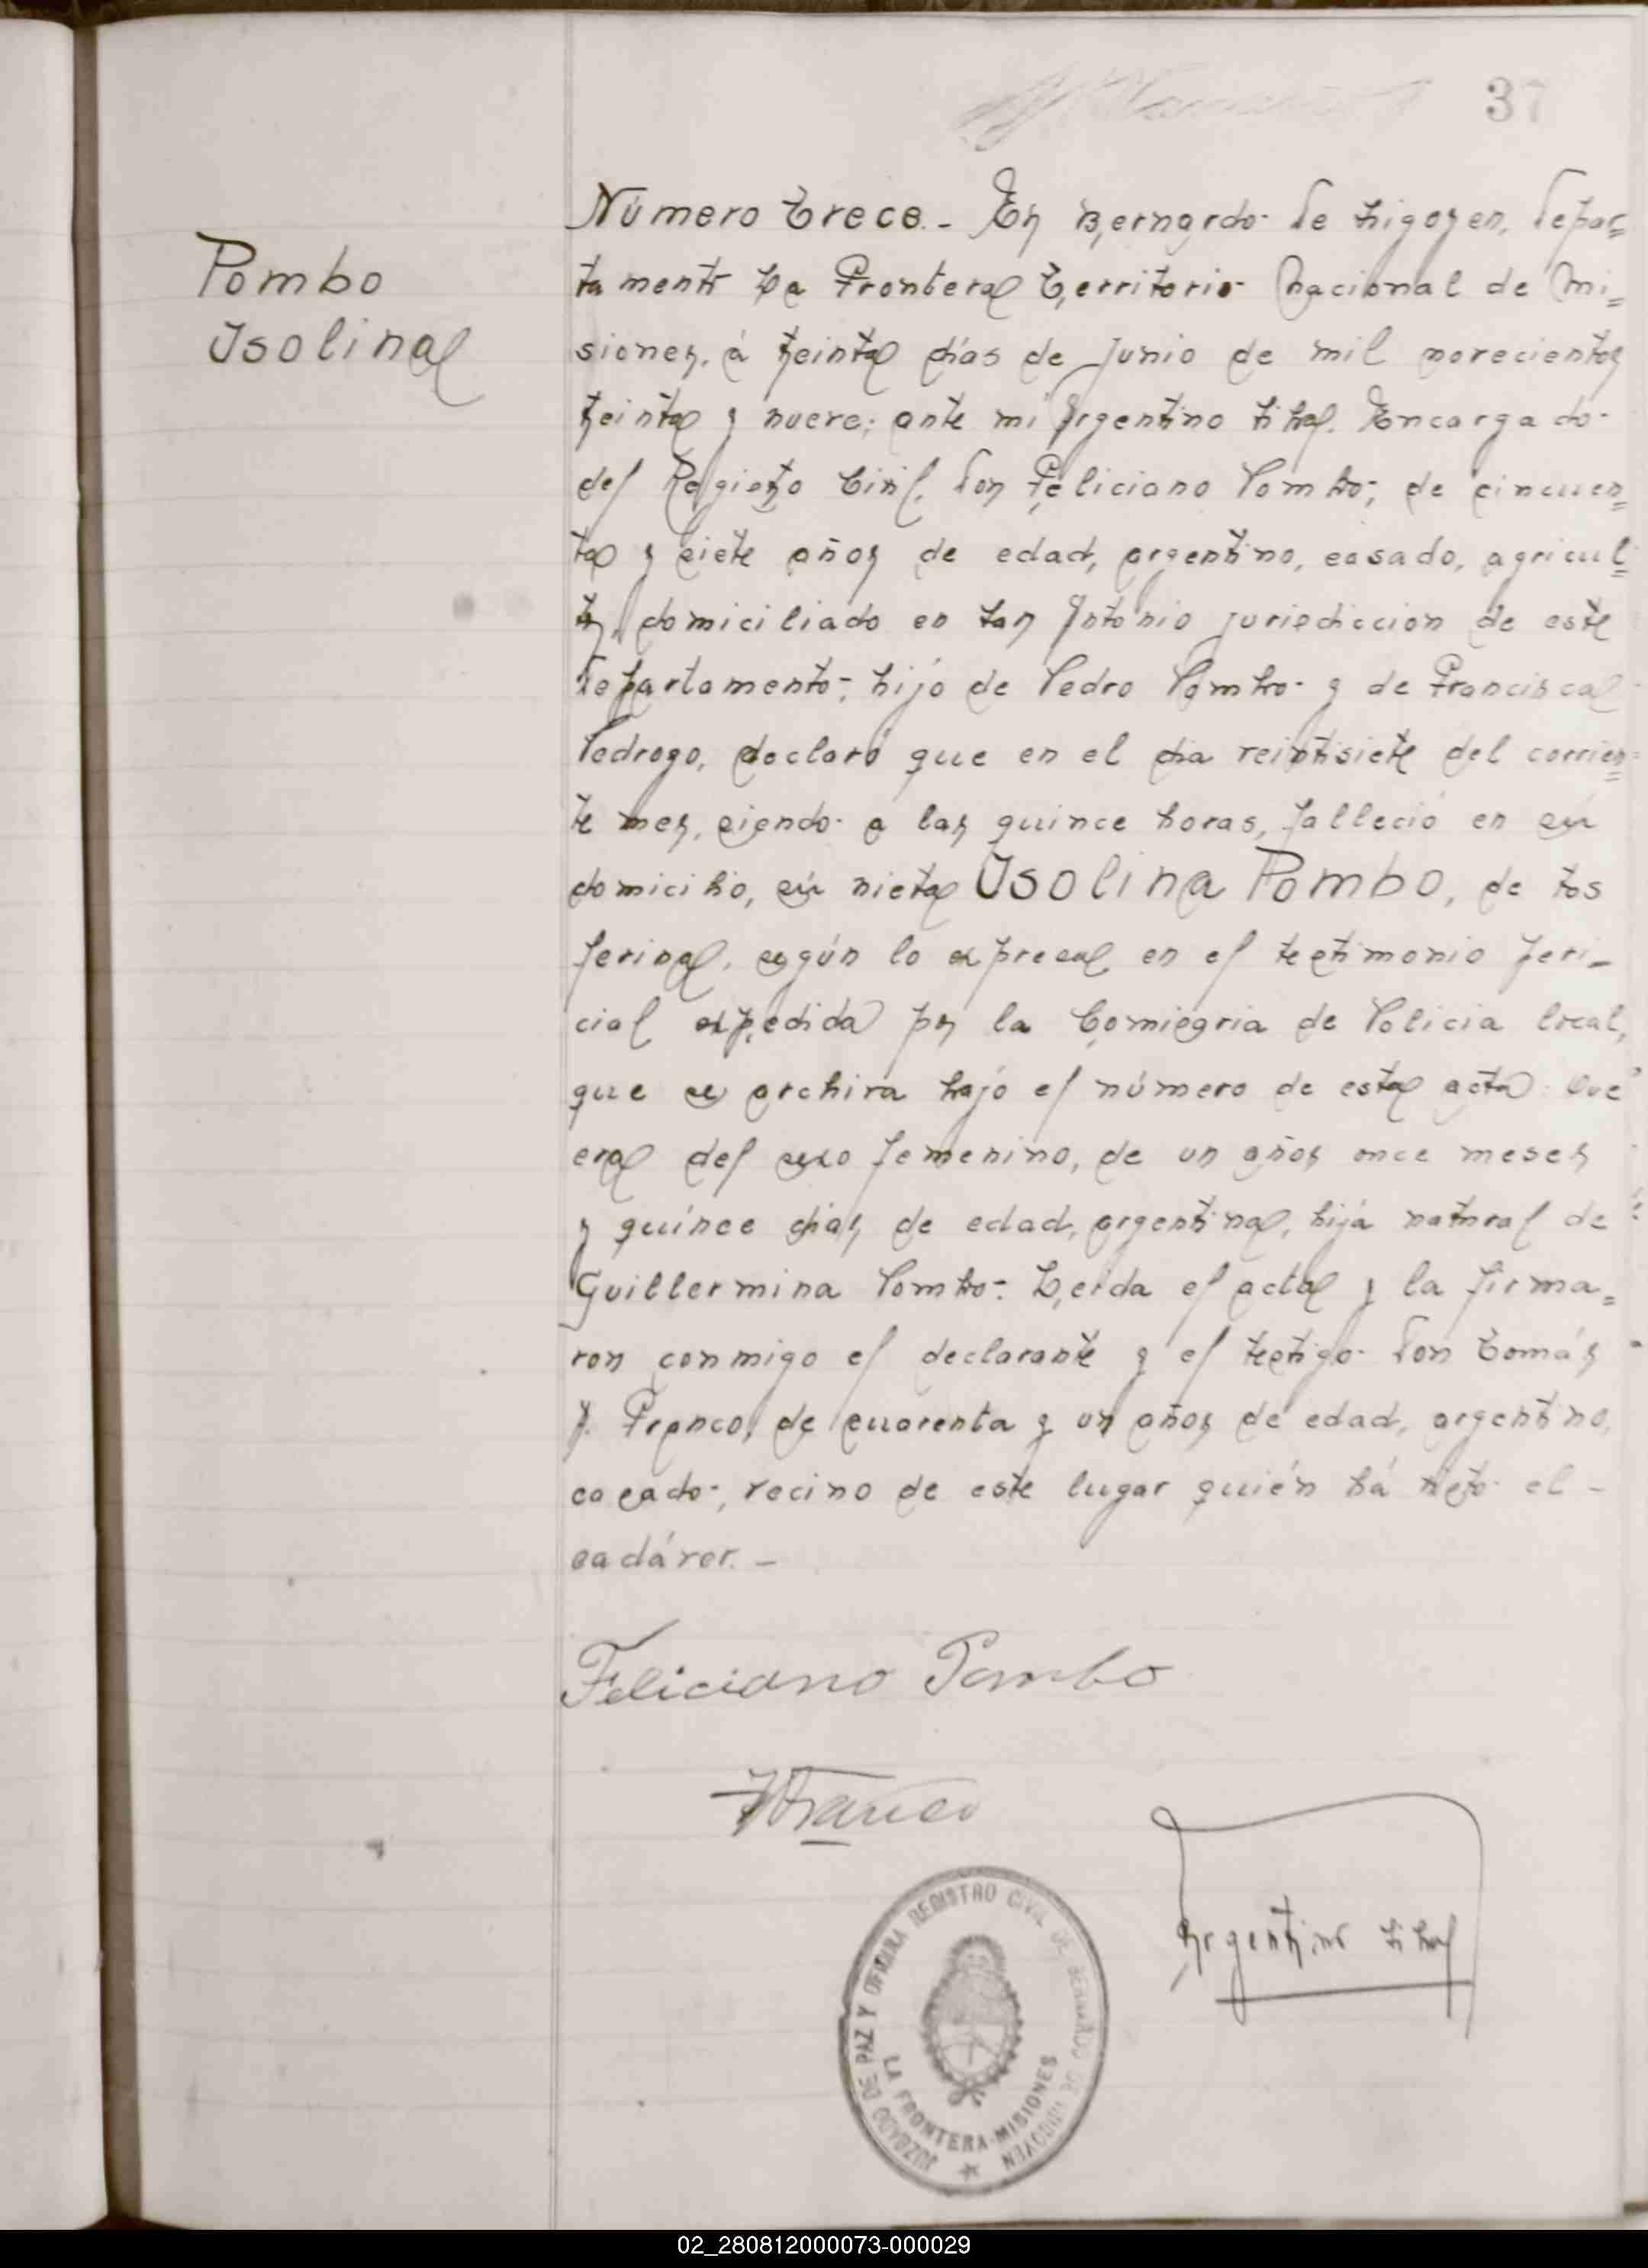 37
Pombo
Isolina
Número Trece.- En Bernardo de Irigoyen, depar=
tamento La Frontera Territorio Nacional de Mi=
siones, á treinta días de Junio de mil novecientos
treinta y nueve; ante mi Argentino Encargado
del Registro Civil, Don Feliciano Pombo; de cincuen=
ta y siete años de edad, argentino, casado, agricul=
tor, domiciliado en San Antonio jurisdiccion de este
Departamento; hijo de Pedro Pombo y de Francisca
Pedrozo, declaró que en el dia veintisiete del corrien=
te mes, siendo a las quince horas, falleció en su
domicilio, su nieta Isolina Pombo, de tos
ferina, según lo expresa en el testimonio peri-
cial expedida por la Comisaria de Policia local,
que se archiva bajo el número de esta acta. Que
era del sexo femenino, de un años once meses
y quínce dias de edad, argentina, hija natural de
Guillermina Pombo. Leida el acta y la firma=
ron conmigo el declarante y el testigo Don Tomás
Franco, de cuarenta y un años de edad, argentino,
casado, vecino de este lugar quién há visto el -
cadáver. -
Feliciano Pombo
TFranco
Argentino
JUZGADO DE PAZ Y OFICINA REGISTRO CIVIL DE BERNARDO DE IRIGOYEN
LA FRONTERA-MISIONES
02_280812000073-000029